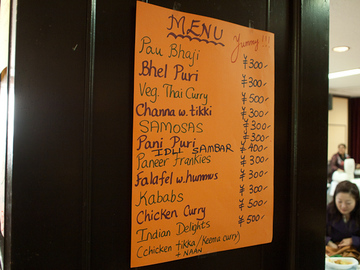 MENU
Yummy !!!
Pau Bhaji ¥300/-
Bhel Puri ¥300/-
Veg. Thai Curry ¥500/-
Channa w. tikki ¥300/-
SAMOSAS ¥300/-
Pani Puri ¥300/-
IDLI SAMBAR ¥400/-
Paneer Frankies ¥300/-
Falafel w. hummus ¥300/-
Kababs ¥300/-
Chicken Curry ¥500/-
Indian Delights ¥500/-
(chicken tikka/Keema curry)
+ NAAN